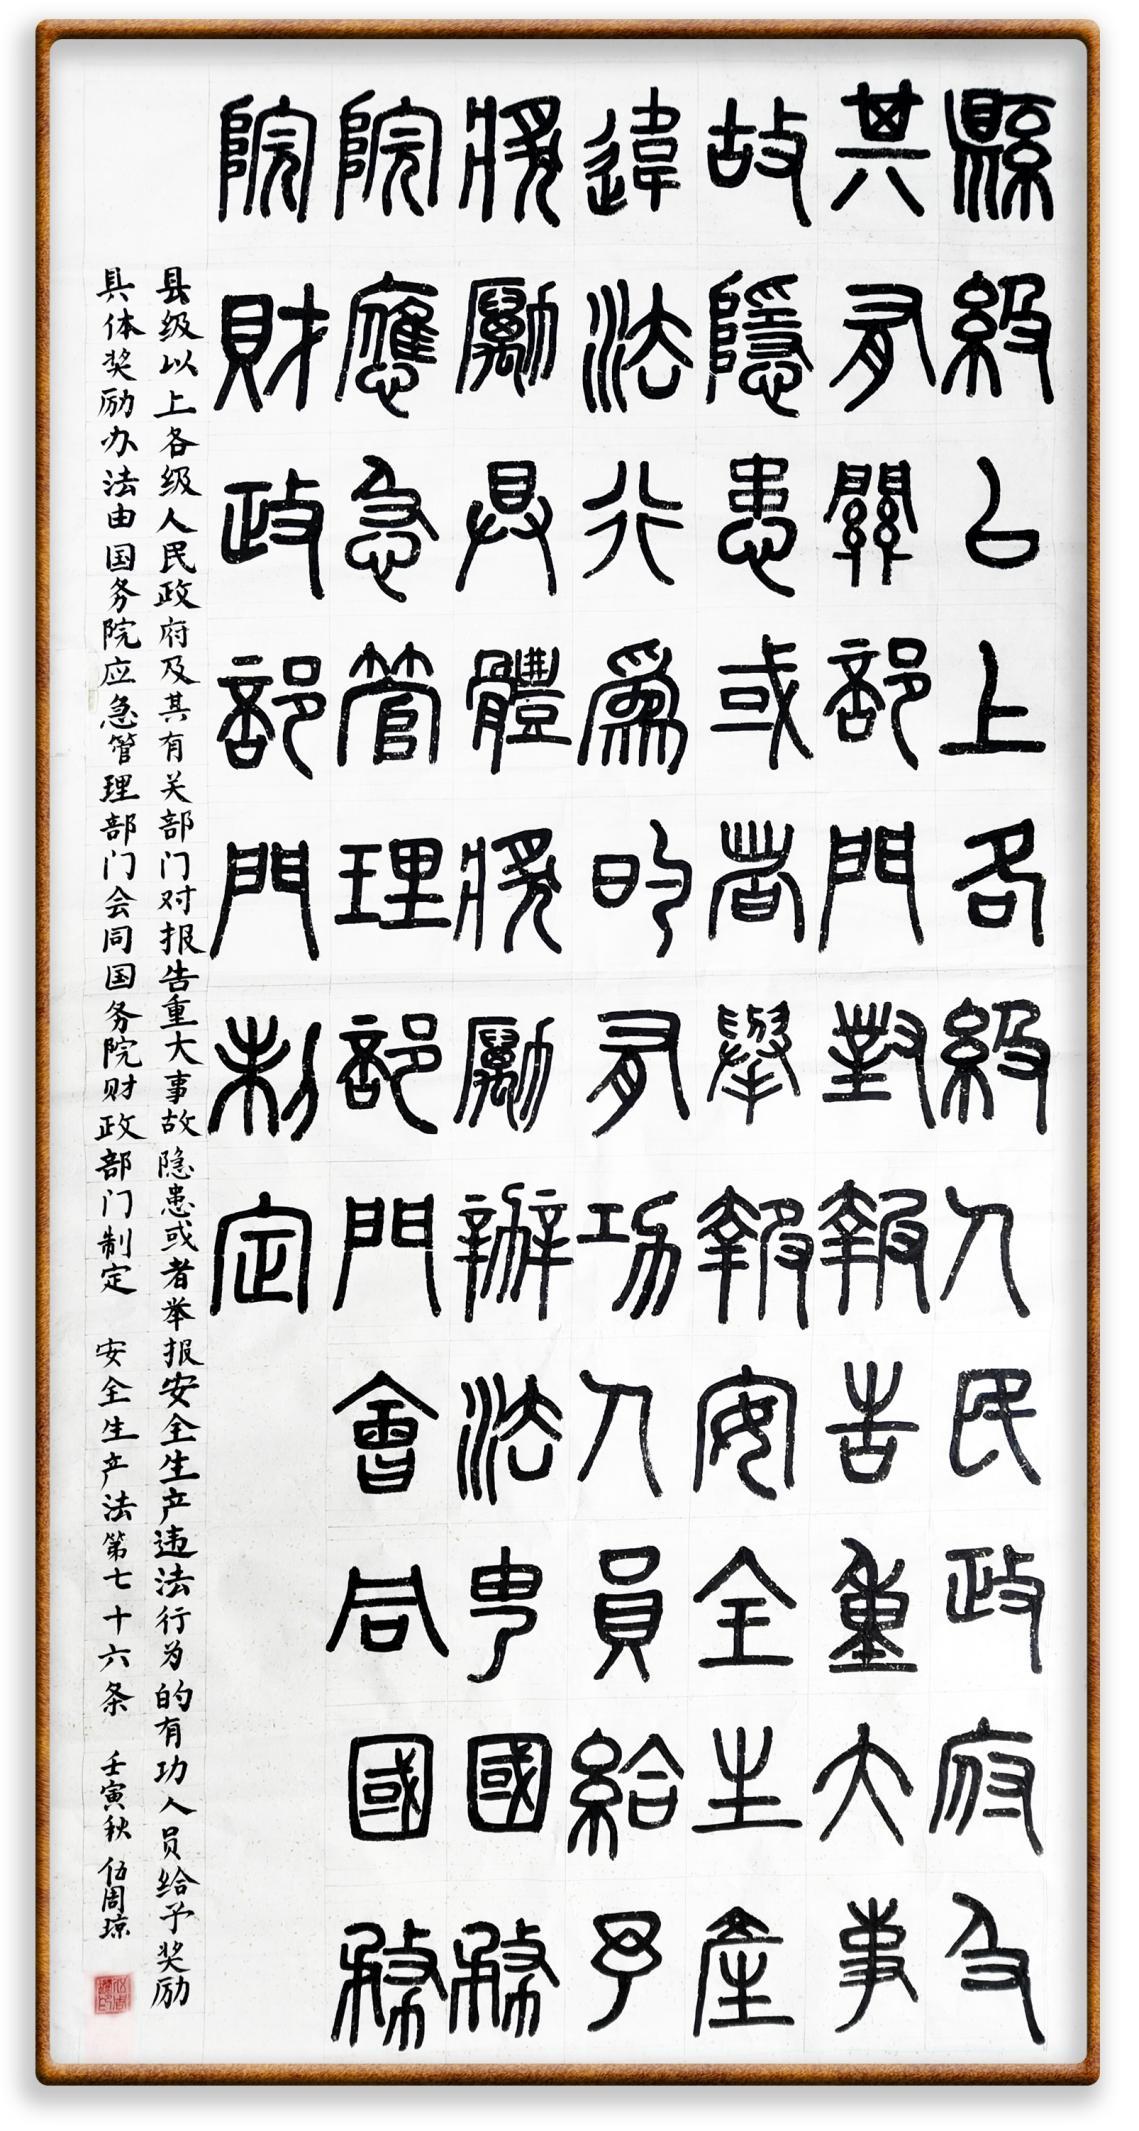 縣級以上各級人民政府及
其有關部門對報告重大事
故隱患或者舉報安全生產
違法行為的有功人員給予
獎勵具體獎勵辦法由國務
院應急管理部門會同國務
院財政部門制定
县级以上各级人民政府及其有关部门对报告重大事故隐患或者举报安全生产违法行为的有功人员给予奖励
具体奖励办法由国务院应急管理部门会同国务院财政部门制定 安全生产法第七十六条 壬寅秋 伍周琼